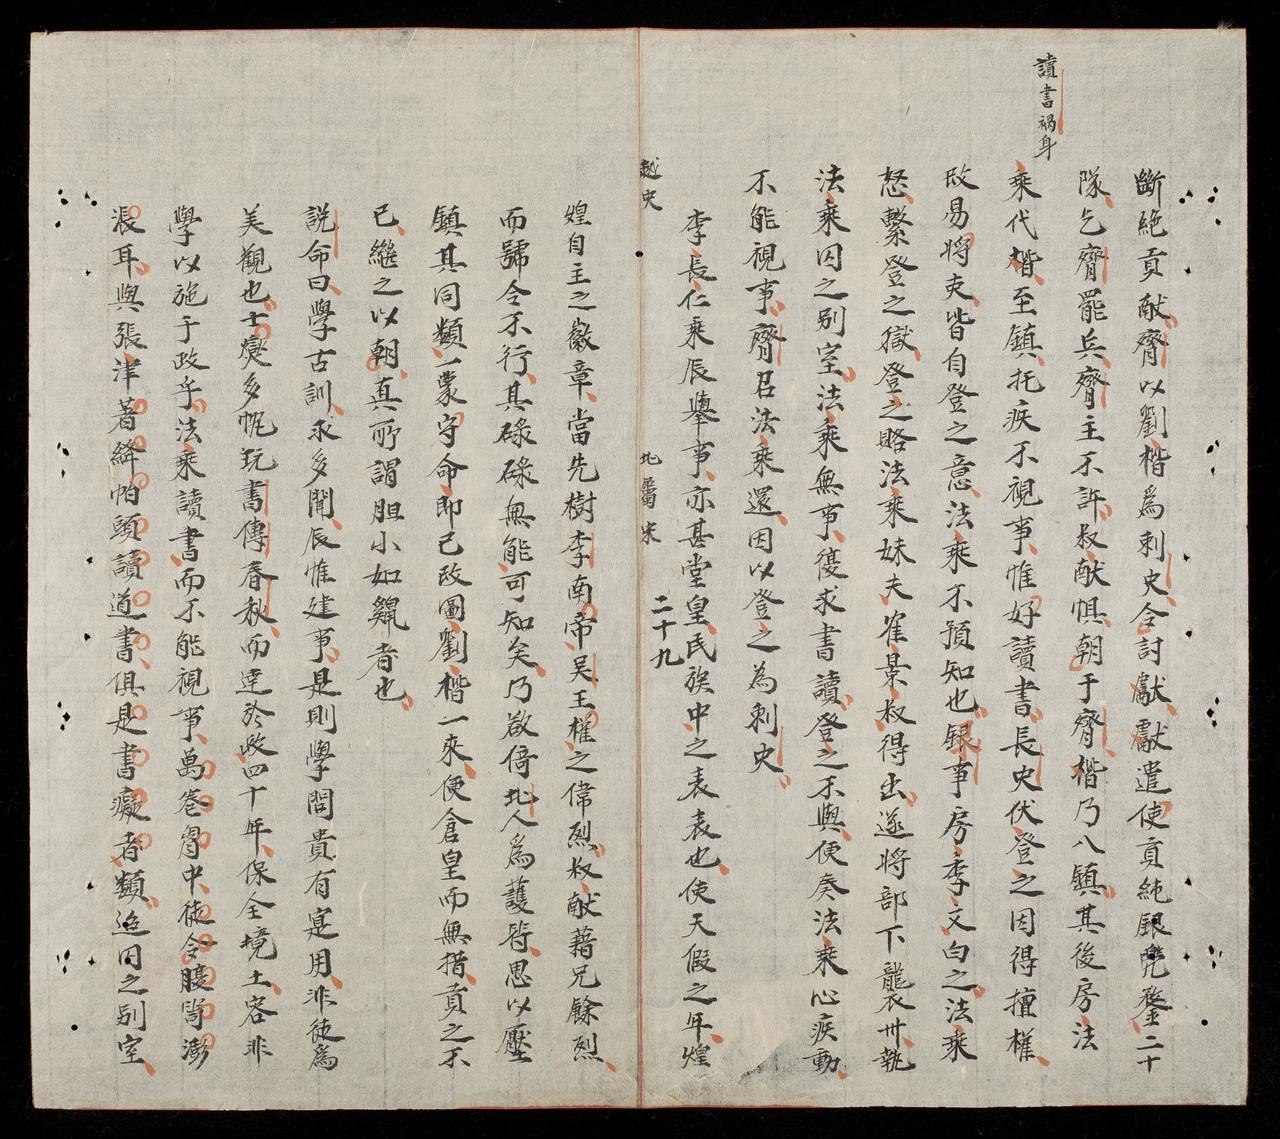 讀書禍身
斷絶貢献齊以劉楷爲刺史令討獻獻遣使貢純銀兠鍪二十
隊乞齊罷兵齊主不許叔献惧朝于齊楷乃入鎮其後房法
乘代楷至鎮托疾不視事惟好讀書長史伏登之因得擅權
改易將吏皆自登之意法乘不預知也録事房季文白之法乘
怒繫登之獄登之賂法乘妹夫崔景叔得出遂將部下襲州執
法乘囚之别室法乘無事復求書讀登之不與便奏法乘心疾動
不能視事齊召法乘還因以登之為刺史
李長仁乘辰舉事亦甚堂皇民族中之表表也使天假之年煌
越史
北屬 宋
二十九
煌自主之徽章當先樹李南帝吴王權之偉烈叔献藉兄餘烈
而號令不行其碌碌無能可知矣乃敢倚北人爲護符思以壓
鎮其同類一蒙守命即已改圖劉楷一來便倉皇而無措貢之不
已繼之以朝真所謂胆小如鼷者也
説命曰學古訓求多聞辰惟建事是則學問貴有寔用非徒爲
美觀也士燮多帆玩書傳春秋而達於政四十年保全境土容非
學以施于政乎法乘讀書而不能視事萬卷胷中徒令腹笥澎
漲耳與張津著絳帕頭讀道書俱是書癡者類迨囚之别室